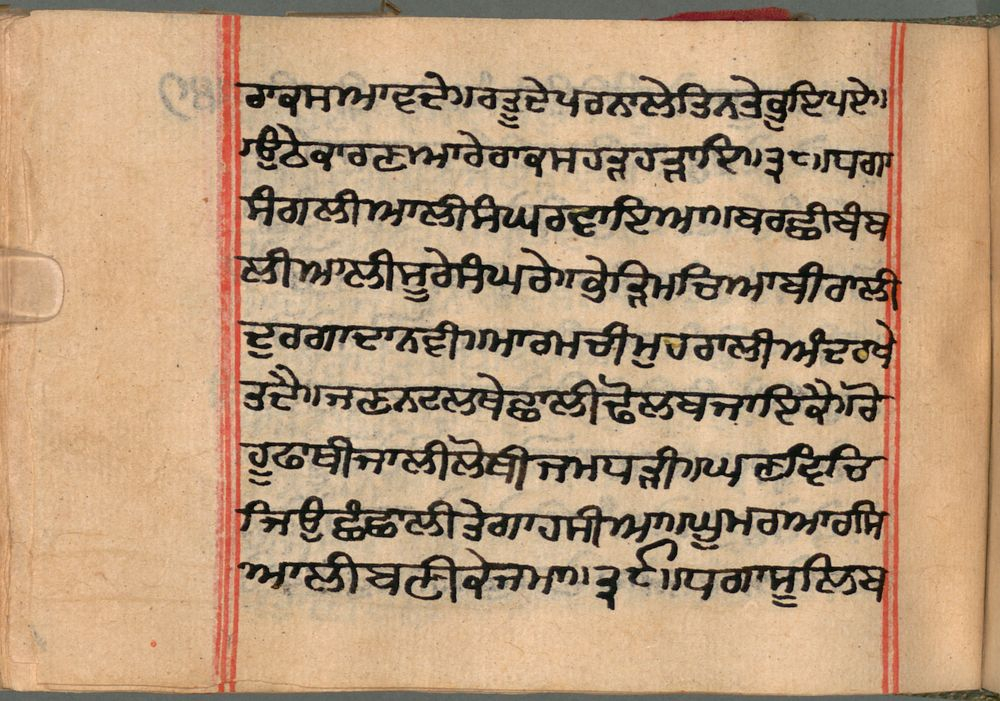 ਰਾਕਸਆਵਦੇ॥ਰਤੂਦੇਪਰਨਾਲੇਤਿਨਤੇਭੁਇਪਏ॥
॥ਉਠੇਕਾਰਣਆਰੇਰਾਕਸਹੜਹੜਾਇ॥੩੮॥ਪਗਾ
ਸੰਗਲੀਆਲੀਸੰਘਰਵਾਇਆ॥ਬਰਛੀਬੰਬ
ਲੀਆਲੀਸੂਰੇਸੰਘਰੇ॥ਭੇੜਿਮਚਿਆਬੀਰਾਲੀ
ਦੁਰਗਾਦਾਨਵੀ॥ਮਾਰਮਚੀਮੁਹਰਾਲੀਅੰਦਰਖੇ
ਤਦੈ॥ਜਣਨਟਲਥੇਛਾਲੀਢੋਲਬਜਾਇਕੈ॥ਰੋ
ਹੂਫਾਥੀਜਾਲੀਲੋਥੀਜਮਧੜੀ॥ਘਣਵਿਚਿ
ਜਿਉਛੰਛਾਲੀਤੇਗਾਹਸੀਆ॥ਘੁਮਰਆਰਸਿ
ਆਲੀਬਣੀਕੇਜਮਾ॥੩੯॥ਧਗਾਸੂਲਿਬ